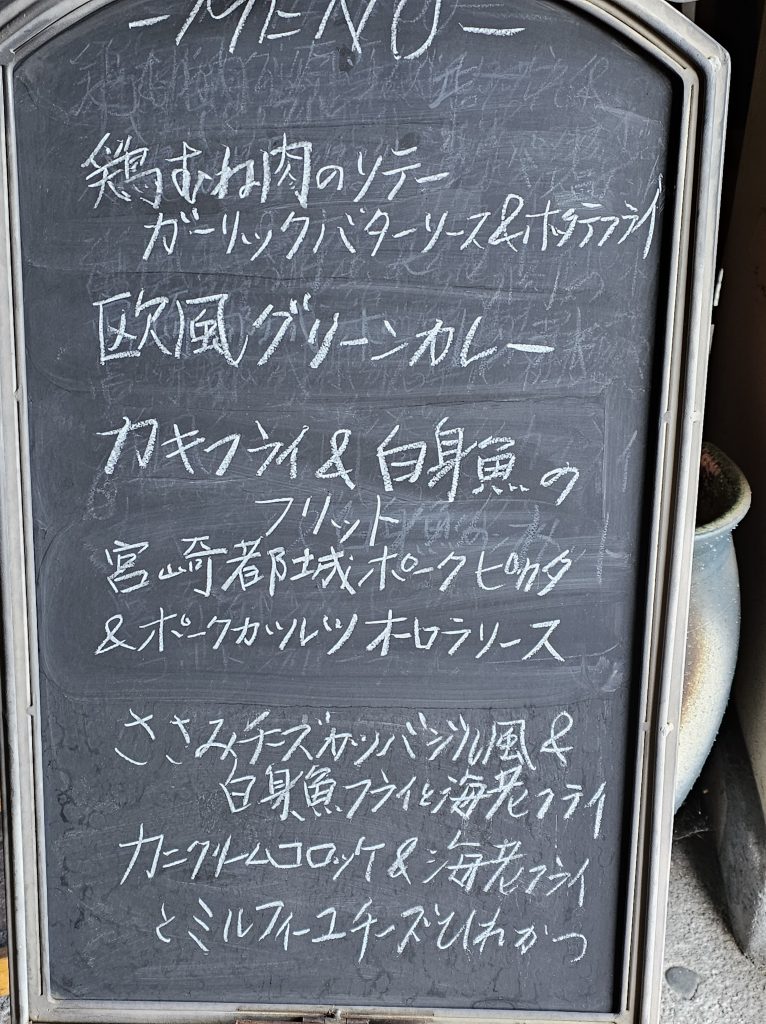 -MENU-
鶏むね肉のソテー
ガーリックバターソース&ホタテフライ
欧風グリーンカレー
カキフライ&白身魚の
フリット
宮崎都城ポークピカタ
&ポークカツレツオーロラソース
ささみチーズカツバジル風&
白身魚フライと海老フライ
カニクリームコロッケ&海老フライ
とミルフィーユチーズひれかつ